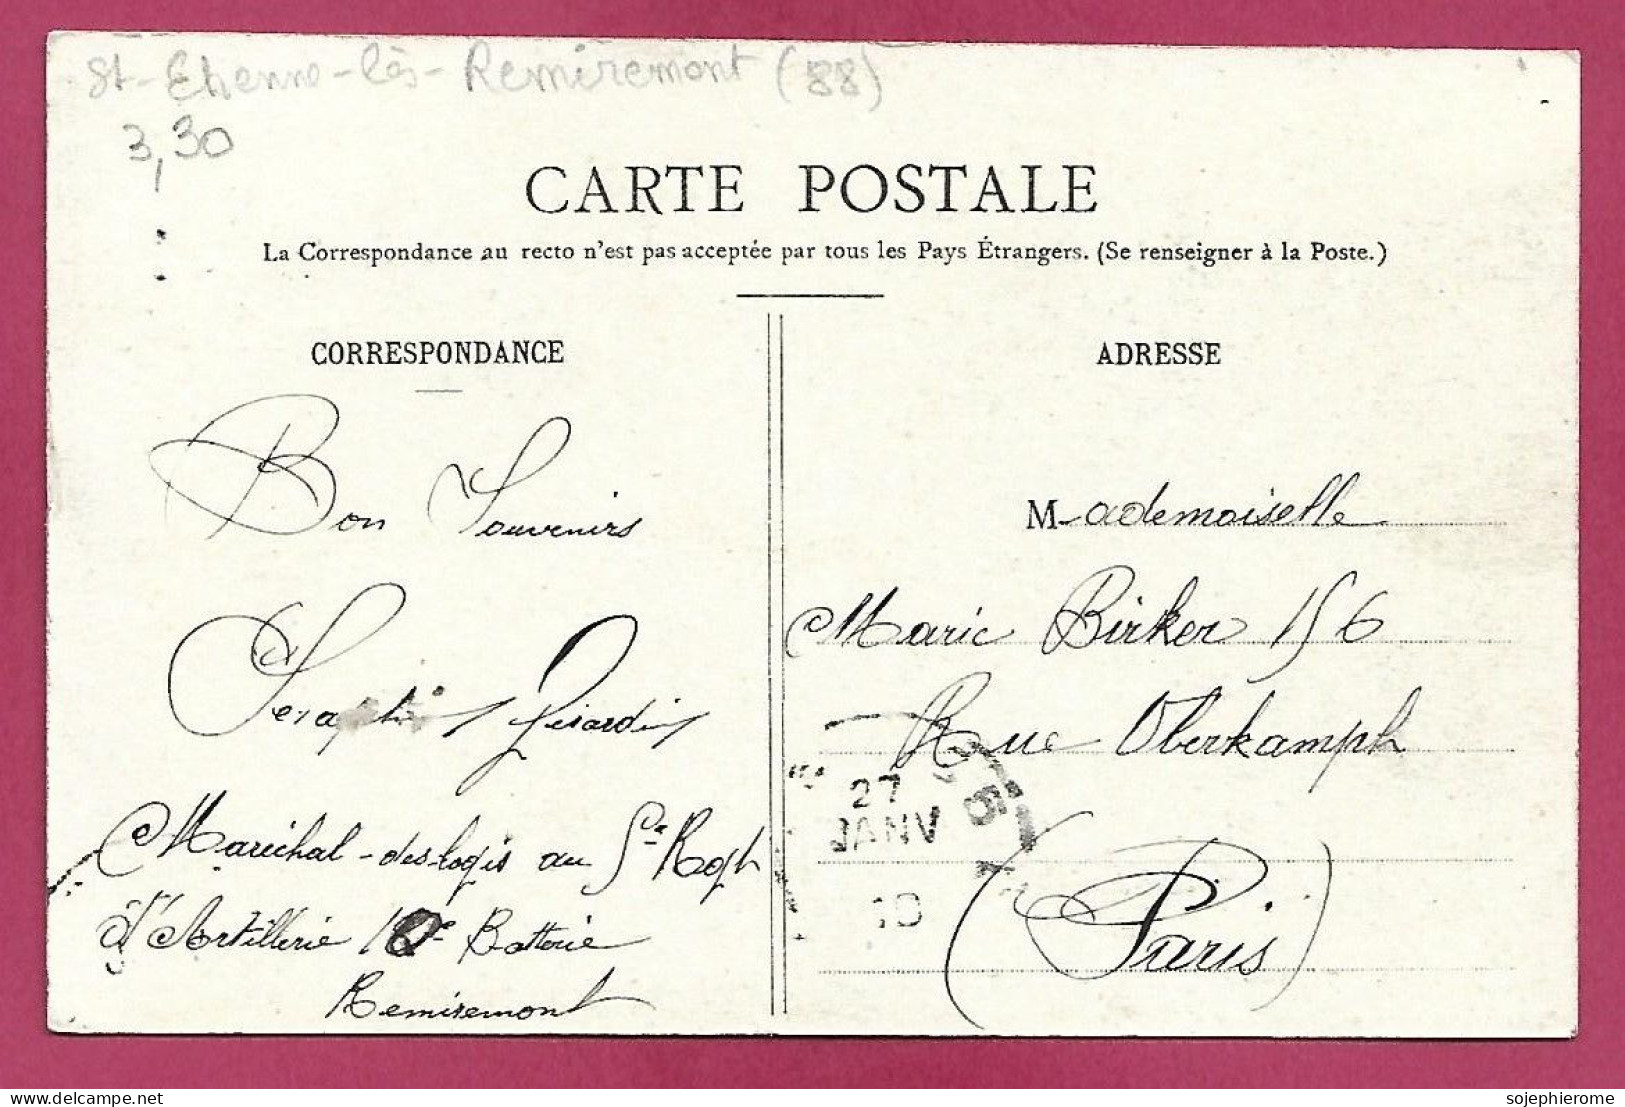 St-Etienne-lès-Remiremont (88)
3,30
CARTE POSTALE
La Correspondance au recto n'est pas acceptée par tous les Pays Étrangers. (Se renseigner à la Poste.)
CORRESPONDANCE
Bon Souvenirs
Seraphin Girardin
Maréchal-des-logis au 5e Regt
d'Artillerie 10e Batterie
Remiremont
ADRESSE
Mademoiselle
Marie Birker 156
Rue Oberkamph
(Paris)
27
JANV
10
delcampe.net
sojephierome